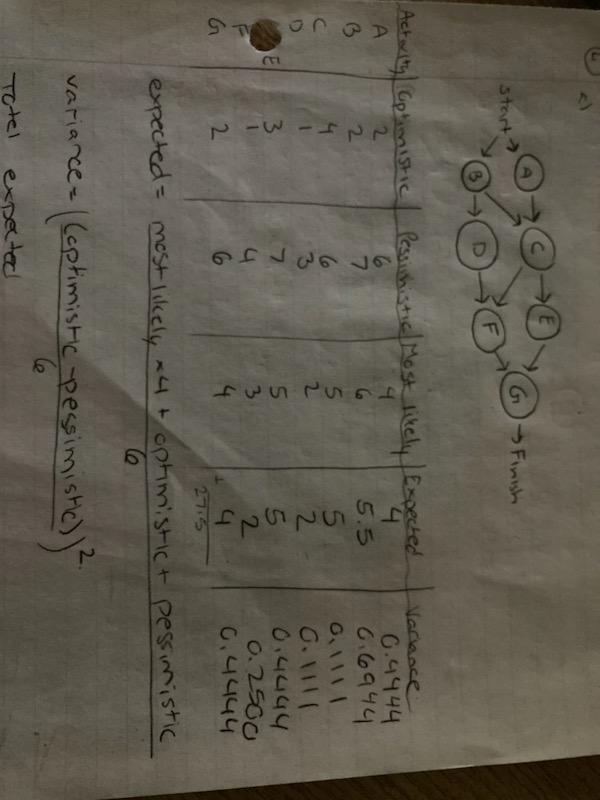 c)
Start
A
C
E
B
D
F
G
Finish
Activity Optimistic Pessimistic Most likely Expected Variance
A 2 6 4 4 0.4444
B 2 7 6 5.5 0.6944
C 4 6 5 5 0.1111
D 1 3 2 2 0.1111
E 3 7 5 5 0.4444
F 1 4 3 2 0.2500
G 2 6 4 + 4 0.4444
27.5
expected = most likely × 4 + optimistic + pessimistic
6
variance = ((optimistic - pessimistic))².
6
Total expected